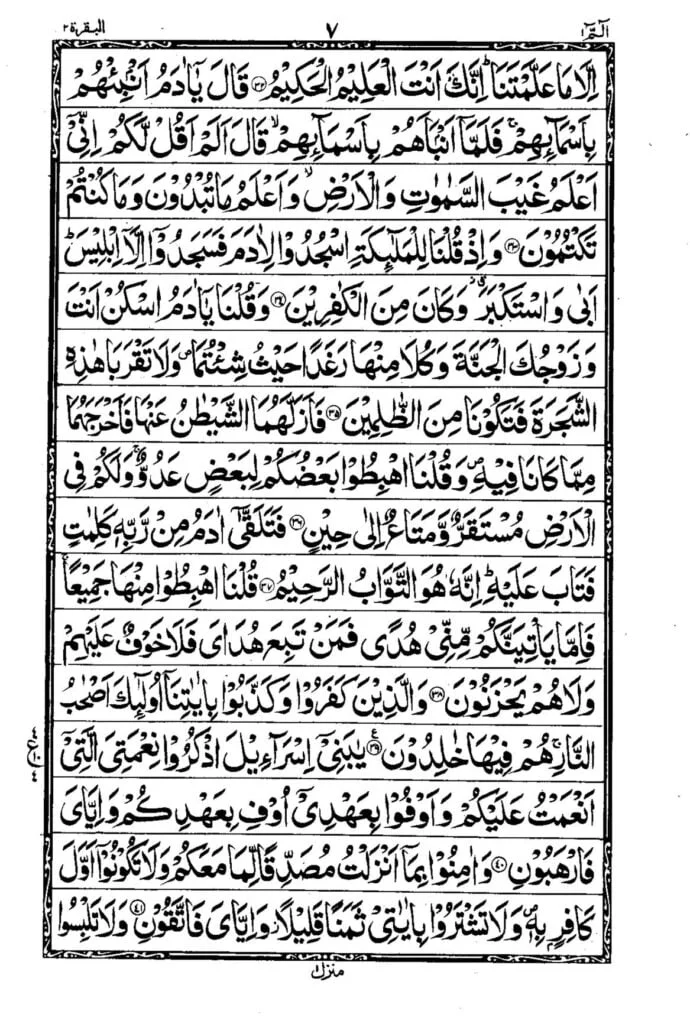 الٓمٓ ١ ٧ البقرة ٢
اِلَّا مَا عَلَّمْتَنَا ؕ اِنَّكَ اَنْتَ الْعَلِیْمُ الْحَكِیْمُ ۝۳۲ قَالَ یٰۤاٰدَمُ اَنْۢبِئْهُمْ
بِاَسْمَآىِٕهِمْ ۚ فَلَمَّاۤ اَنْۢبَاَهُمْ بِاَسْمَآىِٕهِمْ ۙ قَالَ اَلَمْ اَقُلْ لَّكُمْ اِنِّیْۤ
اَعْلَمُ غَیْبَ السَّمٰوٰتِ وَالْاَرْضِ ۙ وَاَعْلَمُ مَا تُبْدُوْنَ وَمَا كُنْتُمْ
تَكْتُمُوْنَ ۝۳۳ وَاِذْ قُلْنَا لِلْمَلٰٓىِٕكَةِ اسْجُدُوْا لِاٰدَمَ فَسَجَدُوْۤا اِلَّاۤ اِبْلِیْسَ ؕ
اَبٰی وَاسْتَكْبَرَ ۗ وَكَانَ مِنَ الْكٰفِرِیْنَ ۝۳۴ وَقُلْنَا یٰۤاٰدَمُ اسْكُنْ اَنْتَ
وَزَوْجُكَ الْجَنَّةَ وَكُلَا مِنْهَا رَغَدًا حَیْثُ شِئْتُمَا ۪ وَلَا تَقْرَبَا هٰذِهِ
الشَّجَرَةَ فَتَكُوْنَا مِنَ الظّٰلِمِیْنَ ۝۳۵ فَاَزَلَّهُمَا الشَّیْطٰنُ عَنْهَا فَاَخْرَجَهُمَا
مِمَّا كَانَا فِیْهِ ۪ وَقُلْنَا اهْبِطُوْا بَعْضُكُمْ لِبَعْضٍ عَدُوٌّ ۚ وَلَكُمْ فِی
الْاَرْضِ مُسْتَقَرٌّ وَّمَتَاعٌ اِلٰی حِیْنٍ ۝۳۶ فَتَلَقّٰۤی اٰدَمُ مِنْ رَّبِّهٖ كَلِمٰتٍ
فَتَابَ عَلَیْهِ ؕ اِنَّهٗ هُوَ التَّوَّابُ الرَّحِیْمُ ۝۳۷ قُلْنَا اهْبِطُوْا مِنْهَا جَمِیْعًا ۚ
فَاِمَّا یَاْتِیَنَّكُمْ مِّنِّیْ هُدًی فَمَنْ تَبِعَ هُدَایَ فَلَا خَوْفٌ عَلَیْهِمْ
وَلَا هُمْ یَحْزَنُوْنَ ۝۳۸ وَالَّذِیْنَ كَفَرُوْا وَكَذَّبُوْا بِاٰیٰتِنَاۤ اُولٰٓىِٕكَ اَصْحٰبُ
النَّارِ ۚ هُمْ فِیْهَا خٰلِدُوْنَ ۝۳۹ یٰبَنِیْۤ اِسْرَآءِیْلَ اذْكُرُوْا نِعْمَتِیَ الَّتِیْۤ
اَنْعَمْتُ عَلَیْكُمْ وَاَوْفُوْا بِعَهْدِیْۤ اُوْفِ بِعَهْدِكُمْ ۚ وَاِیَّایَ
فَارْهَبُوْنِ ۝۴۰ وَاٰمِنُوْا بِمَاۤ اَنْزَلْتُ مُصَدِّقًا لِّمَا مَعَكُمْ وَلَا تَكُوْنُوْۤا اَوَّلَ
كَافِرٍۭ بِهٖ ۪ وَلَا تَشْتَرُوْا بِاٰیٰتِیْ ثَمَنًا قَلِیْلًا ؗ وَّاِیَّایَ فَاتَّقُوْنِ ۝۴۱ وَلَا تَلْبِسُوا
منزل